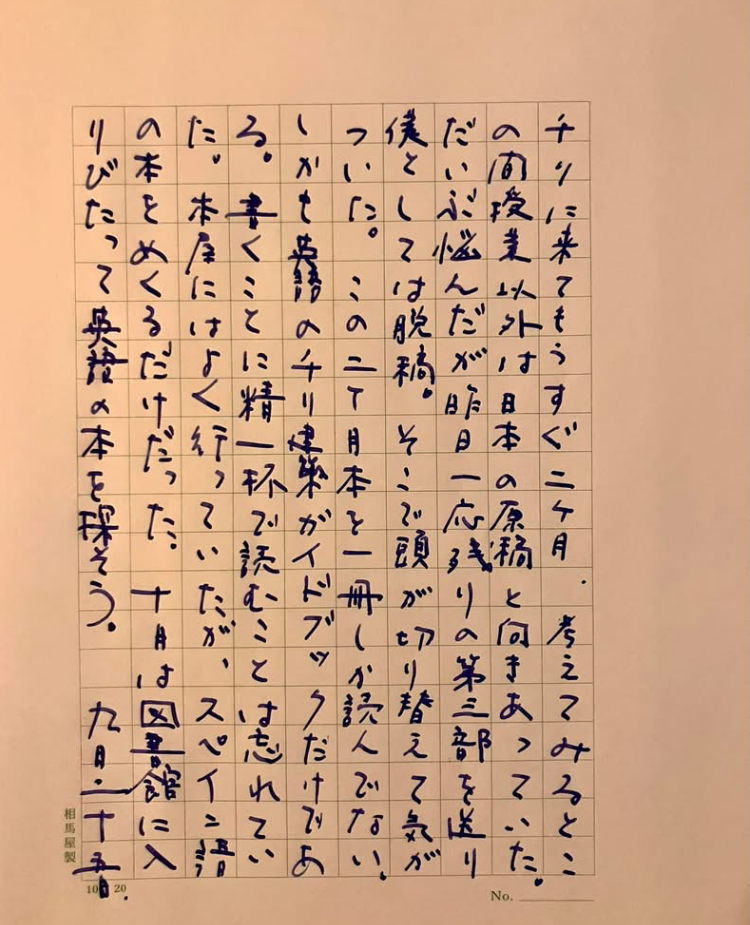 チリに来てもうすぐ二ケ月.考えてみるとこ
の間授業以外は日本の原稿と向きあっていた。
だいぶ悩んだが昨日一応残りの第三部を送り
僕としては脱稿。そこで頭が切り替えて気が
ついた。この二ケ月本を一冊しか読んでない。
しかも英語のチリ建築ガイドブックだけであ
る。書くことに精一杯で読むことは忘れてい
た。本屋にはよく行っていたが、スペイン語
の本をめくるだけだった。十月は図書館に入
りびたって英語の本を探そう。 九月二十五日.
相馬屋製
10 20
No.